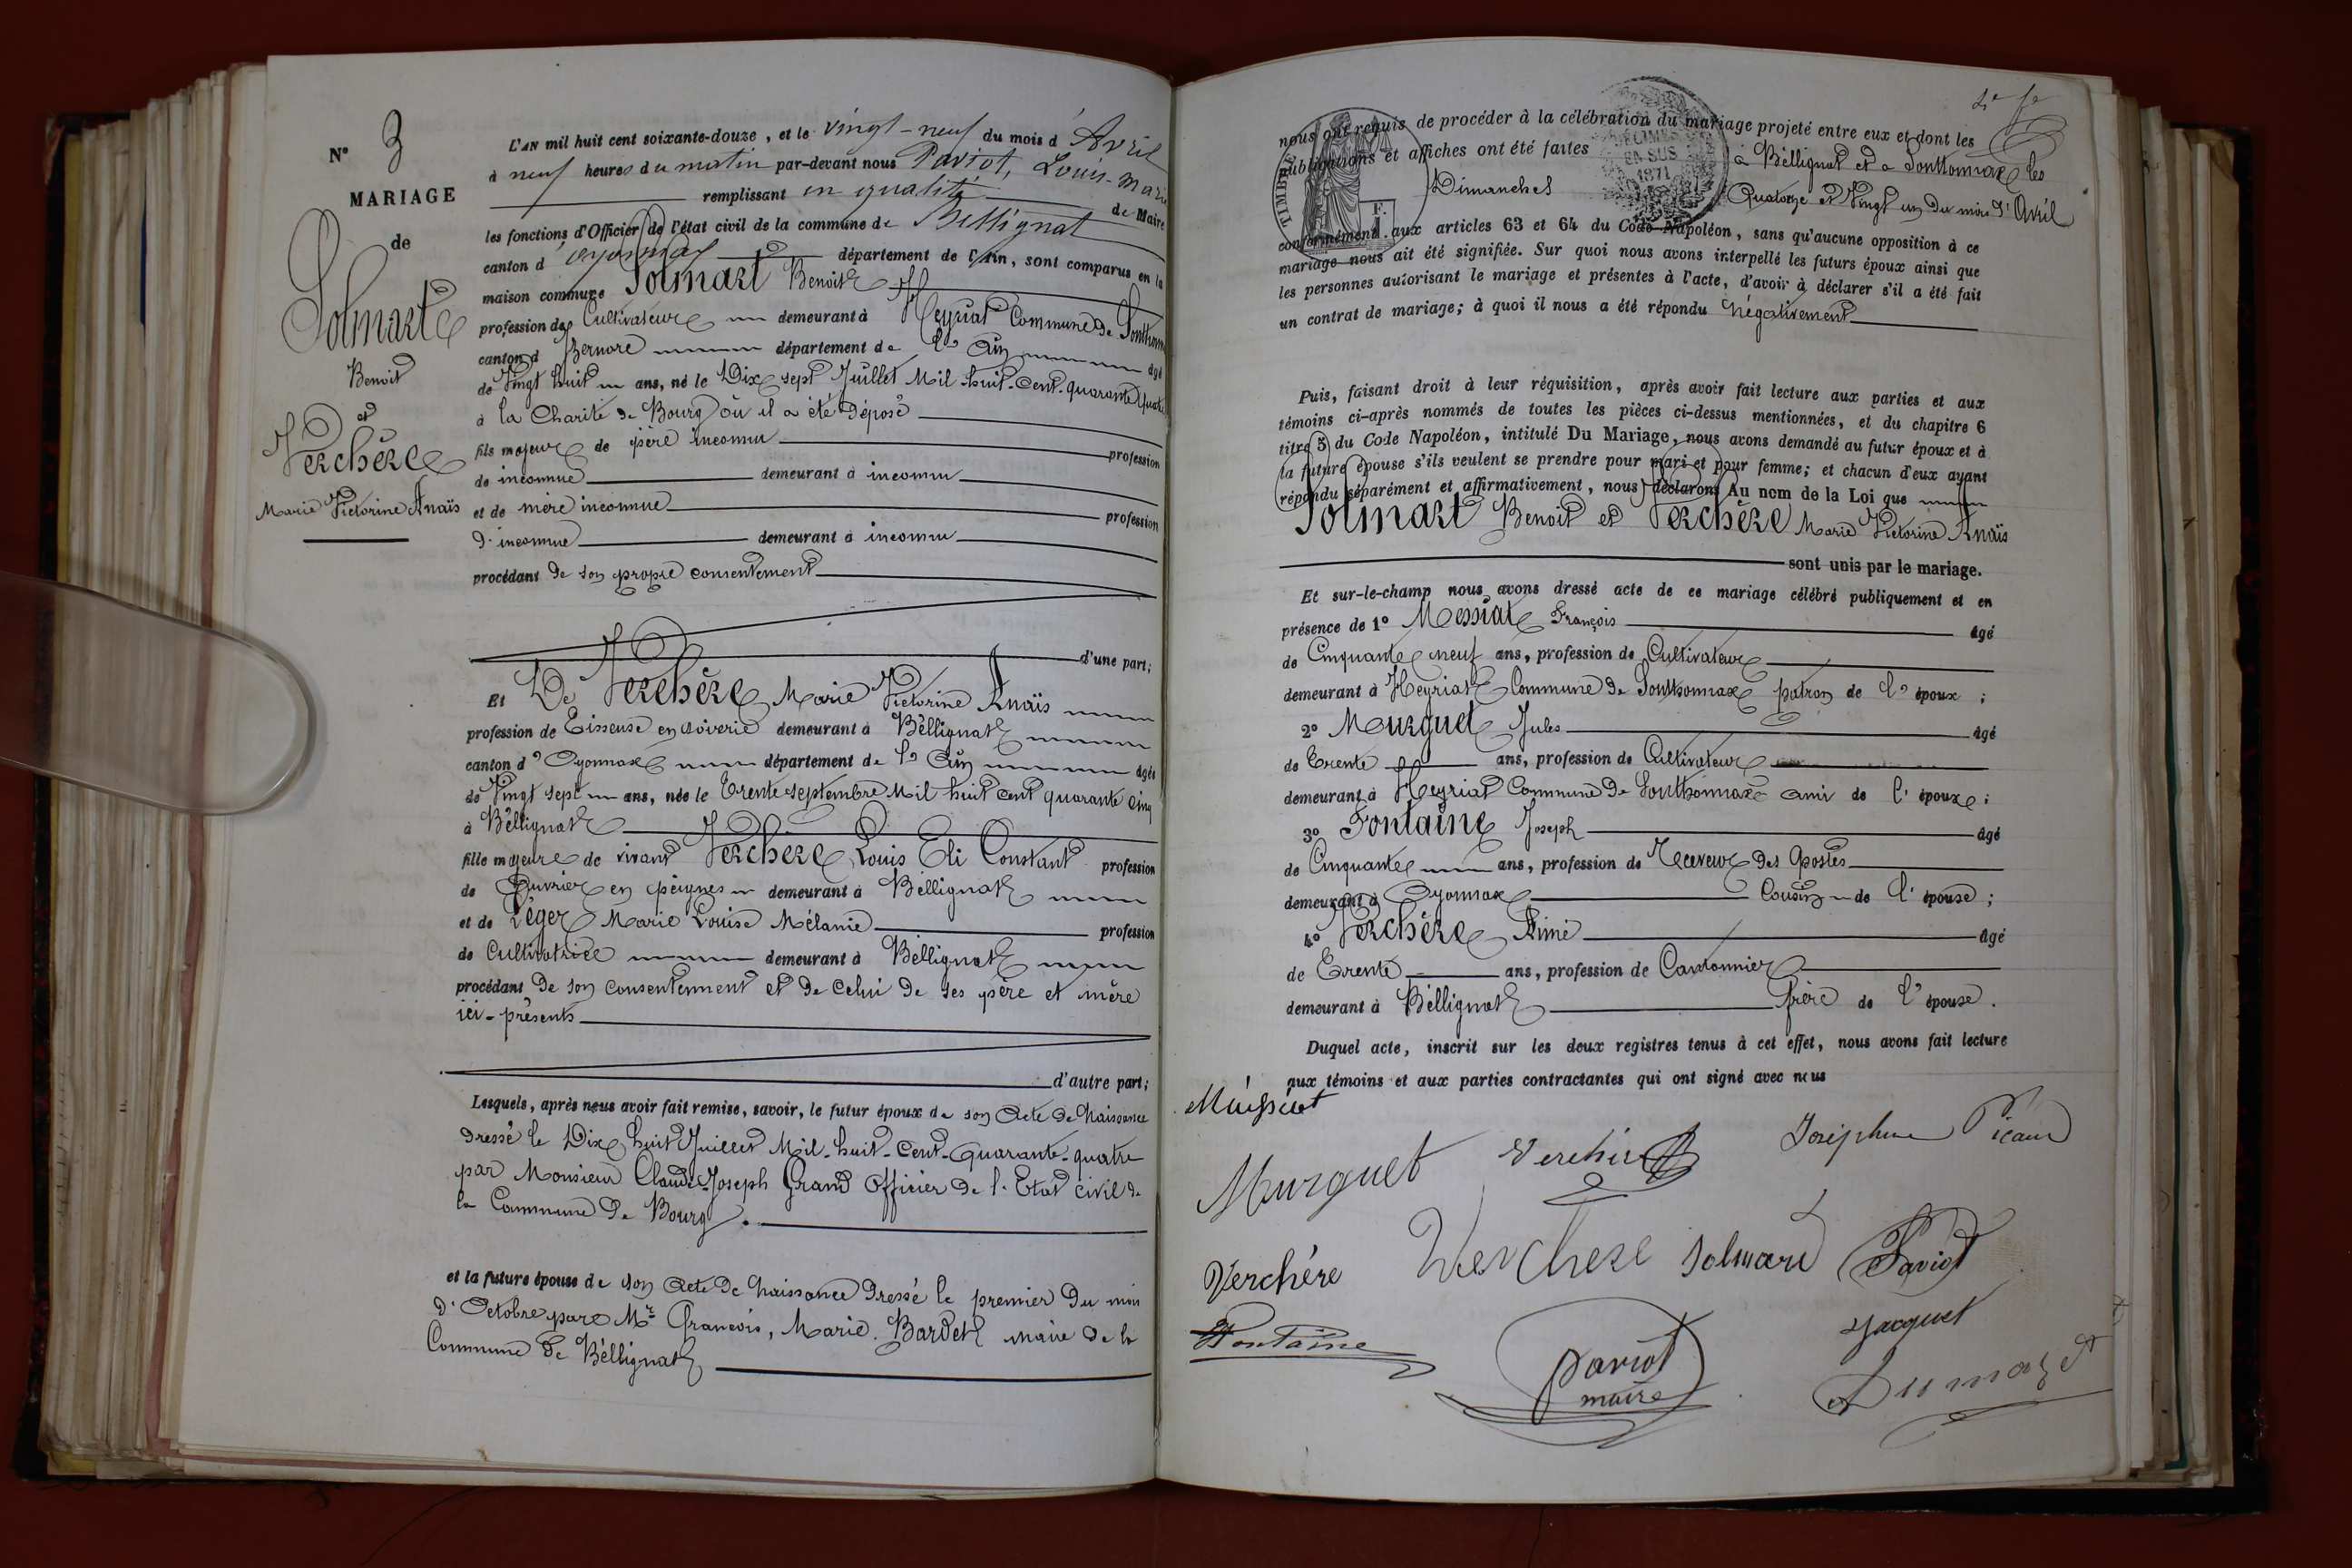 N° 3
MARIAGE
de
Solmart
Benoit
et
Verchère
Marie Victorine Anaïs
L'AN mil huit cent soixante-douze, et le vingt-neuf du mois d'Avril
à neuf heures du matin par-devant nous Paviot, Louis-Marie
remplissant en qualité de Maire
les fonctions d'Officier de l'état civil de la commune de Bellignat
canton d'oyonnax département de l'Ain, sont comparus en la
maison commune Solmart Benoit
profession de Cultivateur demeurant à Heyriat Commune de Sonthonnax
canton d'Izernore département de l'Ain âgé
de Vingt huit ans, né le Dix sept Juillet Mil huit-cent-quarante quatre
à la Charité de Bourg où il a été déposé
fils majeur de père inconnu profession
de inconnue demeurant à inconnu
et de mère inconnue profession
d'inconnue demeurant à inconnu
procédant de son propre consentement
d'une part;
Et De Verchère Marie Victorine Anaïs
profession de Tisseuse en soierie demeurant à Béllignat
canton d'Oyonnax département de l'Ain âgée
de Vingt sept ans, née le Trente septembre Mil huit cent quarante cinq
à Béllignat
fille majeure de vivant Verchère Louis Eli Constant profession
de Ouvrier en peignes demeurant à Béllignat
et de Léger Marie Louise Mélanie profession
de Cultivatrice demeurant à Béllignat
procédant de son consentement et de celui de ses père et mère
ici-présents
d'autre part;
Lesquels, après nous avoir fait remise, savoir, le futur époux de son Acte de Naissance
dressé le Dix huit Juillet Mil-huit-Cent-Quarante-quatre
par Monsieur Claude-Joseph Grand Officier de l'Etat civil de
la Commune de Bourg.
et la future épouse de son Acte de Naissance dressé le premier du mois
d'Octobre par Mr François, Marie. Bardet maire de la
Commune de Béllignat
nous ont requis de procéder à la célébration du mariage projeté entre eux et dont les
publications et affiches ont été faites à Béllignat et à Sonthonnax les
Dimanches Quatorze et Vingt un du mois d'Avril
TIMBRE
DÉCIMES
EN SUS
1871
conformément aux articles 63 et 64 du Code Napoléon, sans qu'aucune opposition à ce
mariage nous ait été signifiée. Sur quoi nous avons interpellé les futurs époux ainsi que
les personnes autorisant le mariage et présentes à l'acte, d'avoir à déclarer s'il a été fait
un contrat de mariage; à quoi il nous a été répondu Négativement
Puis, faisant droit à leur réquisition, après avoir fait lecture aux parties et aux
témoins ci-après nommés de toutes les pièces ci-dessus mentionnées, et du chapitre 6
titre 5 du Code Napoléon, intitulé Du Mariage, nous avons demandé au futur époux et à
la future épouse s'ils veulent se prendre pour mari et pour femme; et chacun d'eux ayant
répondu séparément et affirmativement, nous déclarons Au nom de la Loi que
Solmart Benoit et Verchère Marie Victorine Anaïs
sont unis par le mariage.
Et sur-le-champ nous avons dressé acte de ce mariage célébré publiquement et en
présence de 1° Messiat François âgé
de Cinquante neuf ans, profession de Cultivateur
demeurant à Heyriat Commune de Sonthonnax patron de l'époux;
2° Murguet Jules âgé
de Trente ans, profession de Cultivateur
demeurant à Heyriat Commune de Sonthonnax ami de l'époux;
3° Fontaine Joseph âgé
de Cinquante ans, profession de Receveur des Postes
demeurant à Oyonnax Cousin de l'épouse;
4° Verchère Aimé âgé
de Trente ans, profession de Cantonnier
demeurant à Béllignat frère de l'épouse.
Duquel acte, inscrit sur les deux registres tenus à cet effet, nous avons fait lecture
aux témoins et aux parties contractantes qui ont signé avec nous
Murguet Verchère Joséphine Picaud
Verchère Verchere Solmard Paviot
Fontaine Paviot Jacquet
maire Dumazet